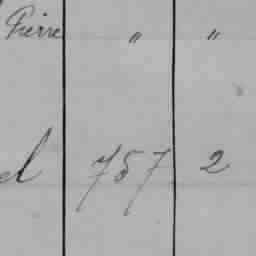 Pierre " "
el 757 2